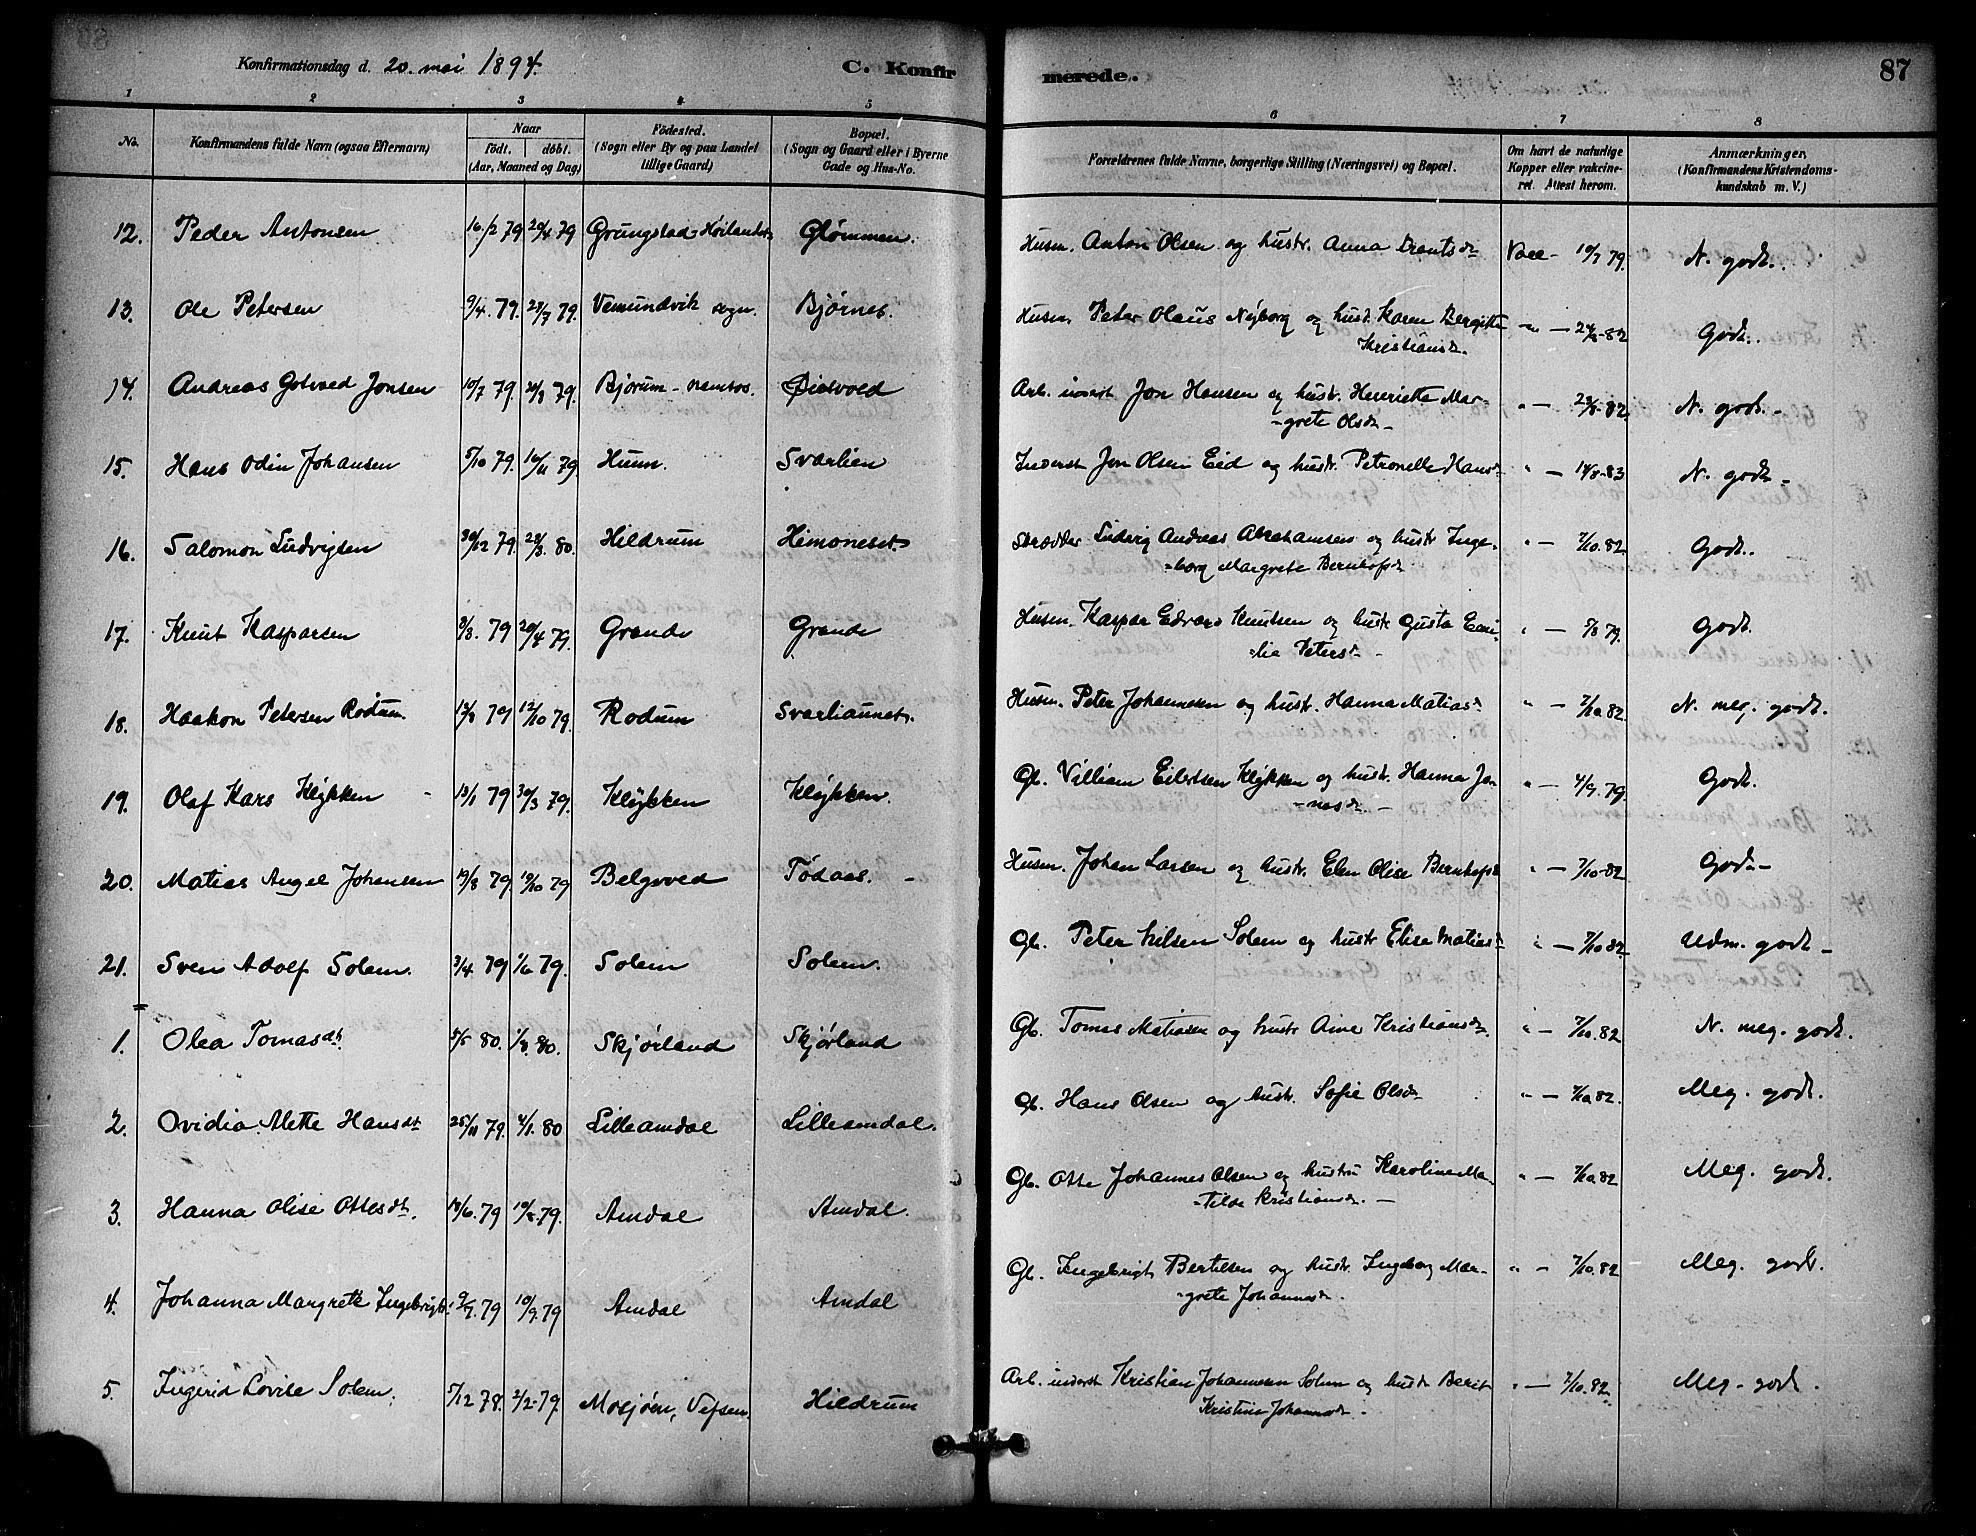 Konfirmationsdag d. 20. mai 1894.
C. Konfirmerede.
87
1 2 3 4 5 6 7 8
No.
Konfirmandens fulde Navn (ogsaa Efternavn)
Naar
Födt. döbt.
(Aar, Maaned og Dag)
Födested.
(Sogn eller By og paa Landet
tillige Gaard)
Bopæl.
(Sogn og Gaard eller i Byerne
Gade og Hus-No.
Forældrenes fulde Navne, borgerlige Stilling (Næringsvei) og Bopæl.
Om havt de naturlige
Kopper eller vakcine-
ret. Attest herom.
Anmærkninger,
(Konfirmandens Kristendoms-
kundskab m. V.)
12. Peder Antonsen 16/2 79 20/4 79 Grungstad-Høilandet Glömmen. Husm. Anton Olsen og hustr. Anna Brentsdr Vacc - 10/7 79. N. godt.
13. Ole Petersen 9/4. 79. 27/7 79. Vemundvik sogn. Bjørnes. Husm. Peter Olaus Nÿborg og hust. Karen Bergitte " — 24/8-82 Godt.
Kristiansdr.
14. Andreas Gotvard Jonsen 10/7 79. 20/8 79. Bjørum - Namsos. Øiesvold Arb. inderst Jon Hansen og hustr. Henriette Mar- " — 23/8-82. N. godt. -
-grete Olsdr -
15. Hans Odin Johansen 5/10 79. 16/11 79. Hunn. Svarlien Inderst Jon Olsen Eid og hustr. Petronelle Hansdr " — 14/8-83 N. godt -
16. Salomon Ludvigsen 30/12 79. 28/3. 80. Hildrum Himoneset. Skrædder Ludvig Andreas Abrahamsen og hustr Inge- " — 7/10.82. Godt.
-borg Margrete Bernhofsdr
17. Knut Kasparsen 3/3. 79 20/4 79. Grande Grande Husm. Kaspar Edvard Knutsen og hustr Gusta Emi- " — 5/8 79. Godt.
lie Petersdr -
18. Haakon Petersen Rodum. 12/8 79 12/10 79. Rodum Svarliaunet. Husm. Peter Johannesen og hustr. Hanna Matiasdr " — 7/10 82. N. meg. godt.
19. Olaf Kars Klÿkken 13/1 79 30/3 79. Klÿkken Klÿkken. Gb. Villiam Eilertsen Klÿkken og hustr. Hanna Jo- " — 4/9. 79. Godt.
-nasdr -
20. Matias Angel Johansen 17/8 79. 19/10 79 Belgvold Tødaas. - Husm. Johan Larsen og hustr. Elen Olise Bernhofsdr " — 7/10-82 Godt -
21. Sven Adolf Solem. 3/4. 79 1/6 79. Solem Solem. Gb. Peter Nilsen Solem og hustr Elise Matiasdr " — 7/10 82. Udm. godt -
1. Olea Tomasdt. 5/5 80. 1/8. 80. Skjørland Skjørland Gb. Tomas Matiasen og hustr Aine Kristiansdr. " — 7/10. 82 N. meg. godt.
2. Ovidia Alette Hansdt 25/11 79. 4/1. 80 Lilleamdal Lilleamdal. Gb. Hans Olsen og hustr. Sofie Olsdr " — 7/10 82. Meg. godt.
3. Hanna Olise Ottesdt. 18/6. 79 10/8. 79. Amdal Amdal. Gb. Otto Johannes Olsen og hustru Karoline Ma- " — 7/10 82 Meg. godt.
-tilde Kristiansdr. -
4. Johanna Margrete Ingebrigtsdt. 9/7. 79 10/9. 79 Amdal Amdal Gb. Ingebrigt Bertelsen og hustr. Ingeborg Mar- " — 7/10. 82 Meg. godt.
-grete Johannesdr.
5. Ingerid Lovise Solem. 5/12 78. 2/2. 79. Mosjøen, Vefsen. Hildrum Arb. inderst Kristian Johannesen Solem og hustr Berit " — 7/10. 82. Meg. godt.
Kristine Johannesdr.